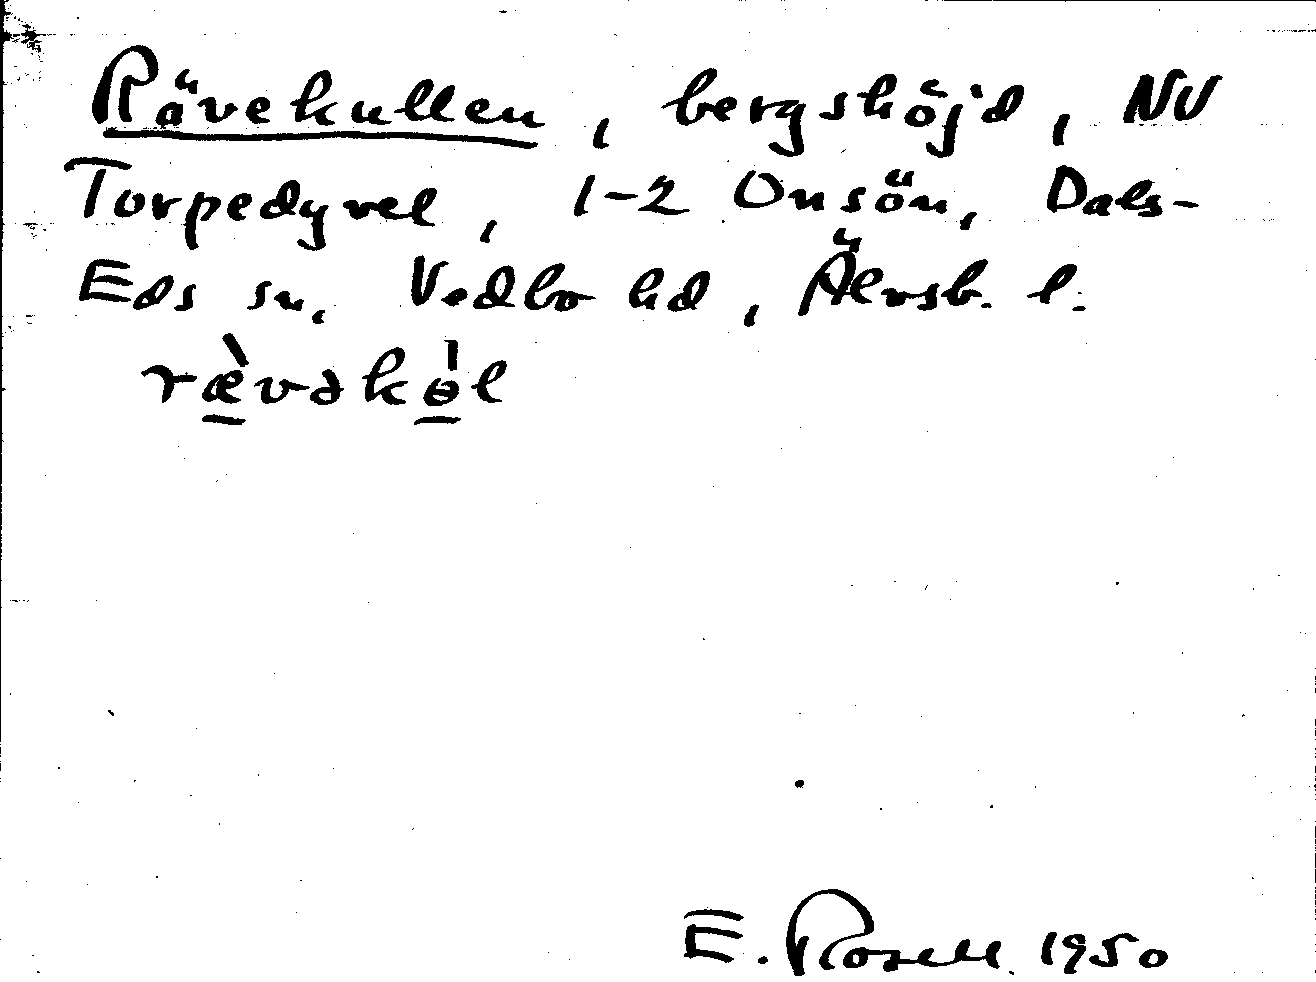 Rävekullen, bergshöjd, NV
Torpedyvel, 1-2 Onsön, Dals-
Eds sn, Vedbo hd, Älvsb. l.
ræ̀vəkɵ̍l
E. Rosell 1950